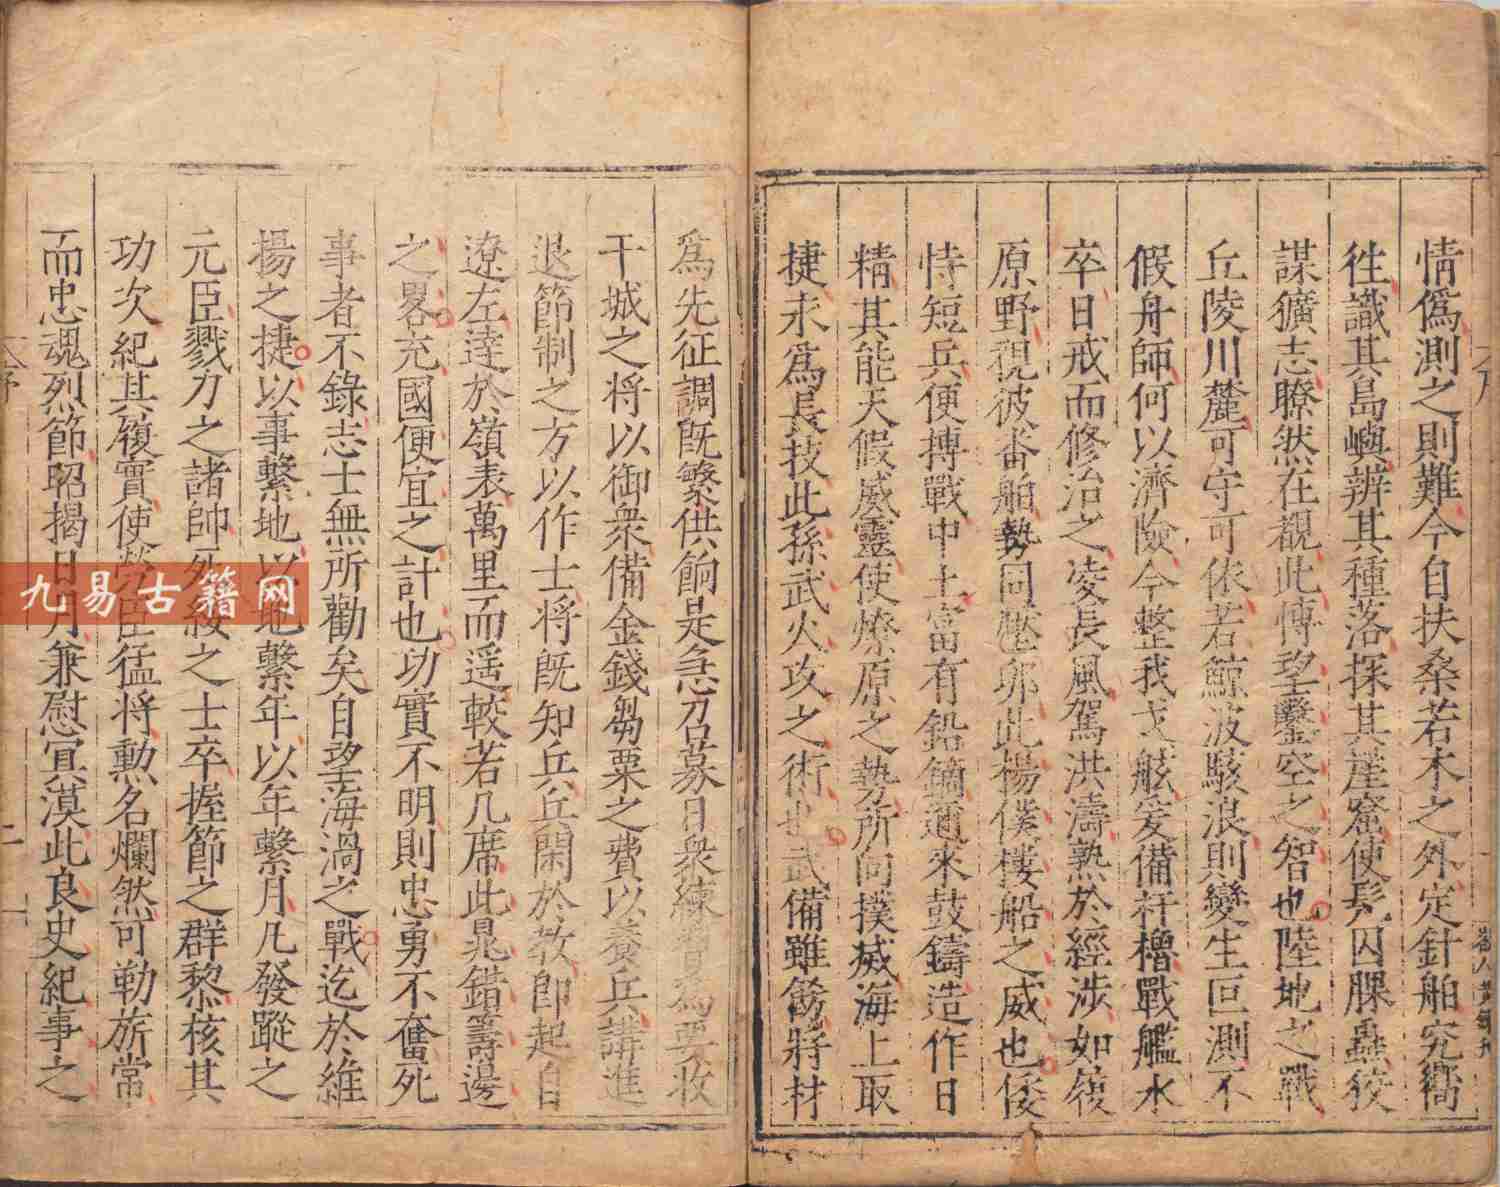 情僞測之則難今自扶桑若木之外定針舶究嚮
徃識其島嶼辨其種落探其窟使髠囚臝蟲狡
謀獷志瞭然在覩此傅望鑿空之智也陸地之戰
丘陵川麓可守可依若鯨波駭浪則變生叵測不
假舟師何以濟險今整我戈舷爰備杆櫓戰艦水
卒日戒而修治之凌長風駕洪濤熟於經涉如履
原野視彼畨舶勢同壓卵此揚僕樓船之威也倭
恃短兵便搏戰中土富有鉛鏑邇來鼓鑄造作日
精其能天假威靈使燎原之勢所向撲㓕海上取
捷永爲長技此孫武火攻之術也武備雖飭將材
爲先征調既繁供餉是急召募日衆練習爲要收
干城之将以御衆備金錢芻粟之費以養兵講進
退節制之方以作士将既知兵兵閑於教即起自
遼左逹於嶺表萬里而遥較若几席此晁錯籌邊
之畧充國便宜之計也功實不明則忠勇不奮死
事者不錄志士無所勸矣自望海渦之戰迄於維
揚之捷以事繫地以地繫年以年繫月凡發蹤之
元臣戮力之諸帥死綏之士卒握節之群黎核其
功次紀其履實使臣猛将勲名爛然可勒旂常
而忠魂烈節昭揭日月兼慰冥漠此良史紀事之
二
九易古籍网